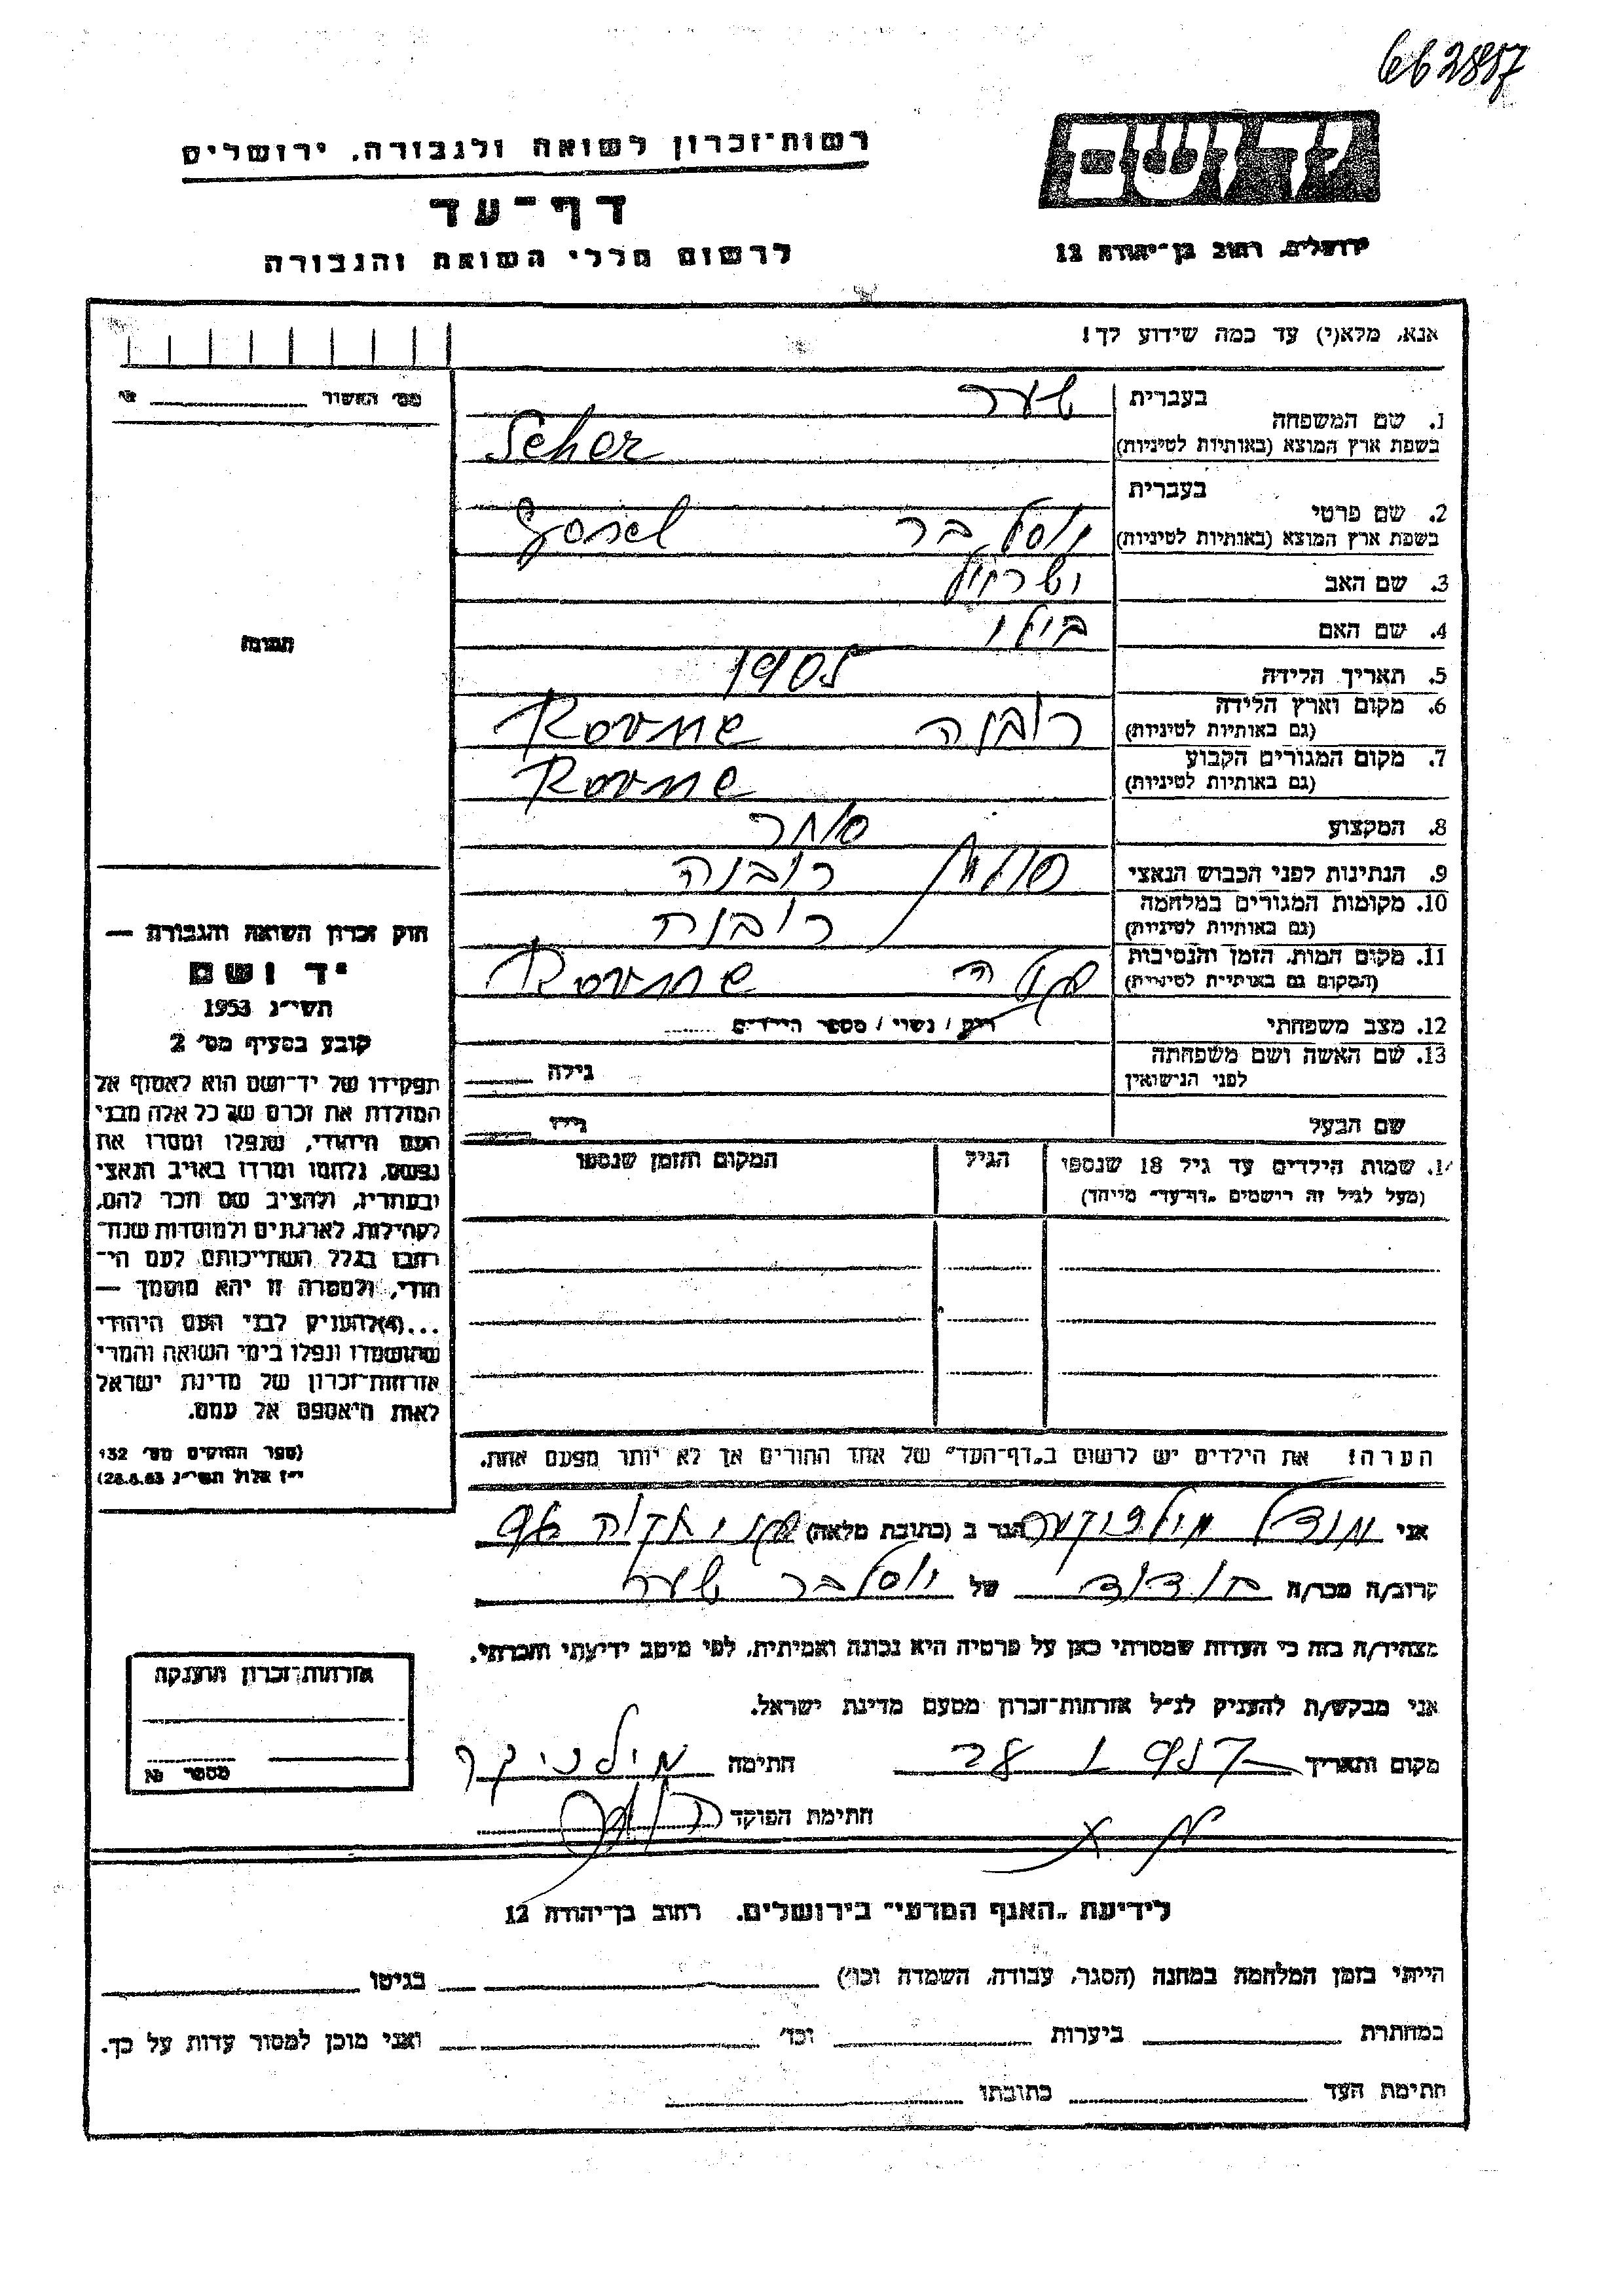 662857
יד ושם
רשות-זכרון לשואה ולגבורה, ירושלים
דף-עד
לרשום חללי השואה והגבורה
ירושלים, רחוב בן-יהודה 12
אנא, מלא(י) עד כמה שידוע לך!
מס' האשור
1. שם המשפחה
בעברית שער
בשפת ארץ המוצא (באותיות לטיניות) Scher
2. שם פרטי
בעברית
יוסל בר
בשפת ארץ המוצא (באותיות לטיניות) Josel
3. שם האב
4. שם האם
5. תאריך הלידה 1905
6. מקום וארץ הלידה
(גם באותיות לטיניות) רובנה Rovne
7. מקום המגורים הקבוע
(גם באותיות לטיניות) Rovne
8. המקצוע סוחר
9. הנתינות לפני הכבוש הנאצי רובנה
10. מקומות המגורים במלחמה
(גם באותיות לטיניות) רובנה
11. מקום המות, הזמן והנסיבות
(המקום גם באותיות לטיניות) Rovne
12. מצב משפחתי רווק / נשוי / מספר הילדים
13. שם האשה ושם משפחתה
לפני הנישואין גילה
שם הבעל גילו
14. שמות הילדים עד גיל 18 שנספו הגיל המקום והזמן שנספו
(מעל לגיל זה רושמים "דף-עד" מייחד)
הערה! את הילדים יש לרשום ב"דף-העד" של אחד ההורים אך לא יותר מפעם אחת.
תמונה
חוק זכרון השואה והגבורה —
יד ושם
תשי"ג 1953
קובע בסעיף מס' 2
תפקידו של יד-ושם הוא לאסוף אל
המולדת את זכרם של כל אלה מבני
העם היהודי, שנפלו ומסרו את
נפשם, נלחמו ומרדו באויב הנאצי
ובעוזריו, ולהציב שם וזכר להם,
לקהילות, לארגונים ולמוסדות שנח-
רבו בגלל השתייכותם לעם הי-
הודי, ולמטרה זו יהא מוסמך —
...(4)להעניק לבני העם היהודי
שהושמדו ונפלו בימי השואה והמרי
אזרחות-זכרון של מדינת ישראל
לאות היאספם אל עמם.
(ספר החוקים מס' 132
י"ז אלול תשי"ג 28.8.53)
אני הגר ב (כתובת מלאה)
קרוב/ה מכר/ה בן דוד של יוסל בר שער
מצהיר/ה בזה כי העדות שמסרתי כאן על פרטיה היא נכונה ואמיתית, לפי מיטב ידיעתי והכרתי.
אני מבקש/ת להעניק לנ"ל אזרחות-זכרון מטעם מדינת ישראל.
מקום ותאריך חתימה
חתימת הפוקד
אזרחות-זכרון הוענקה
מספר
לידיעת "האגף המדעי" בירושלים, רחוב בן-יהודה 12
הייתי בזמן המלחמה במחנה (הסגר, עבודה, השמדה וכו') בגיטו
במחתרת ביערות וכד' ואני מוכן למסור עדות על כך.
חתימת העד כתובתו